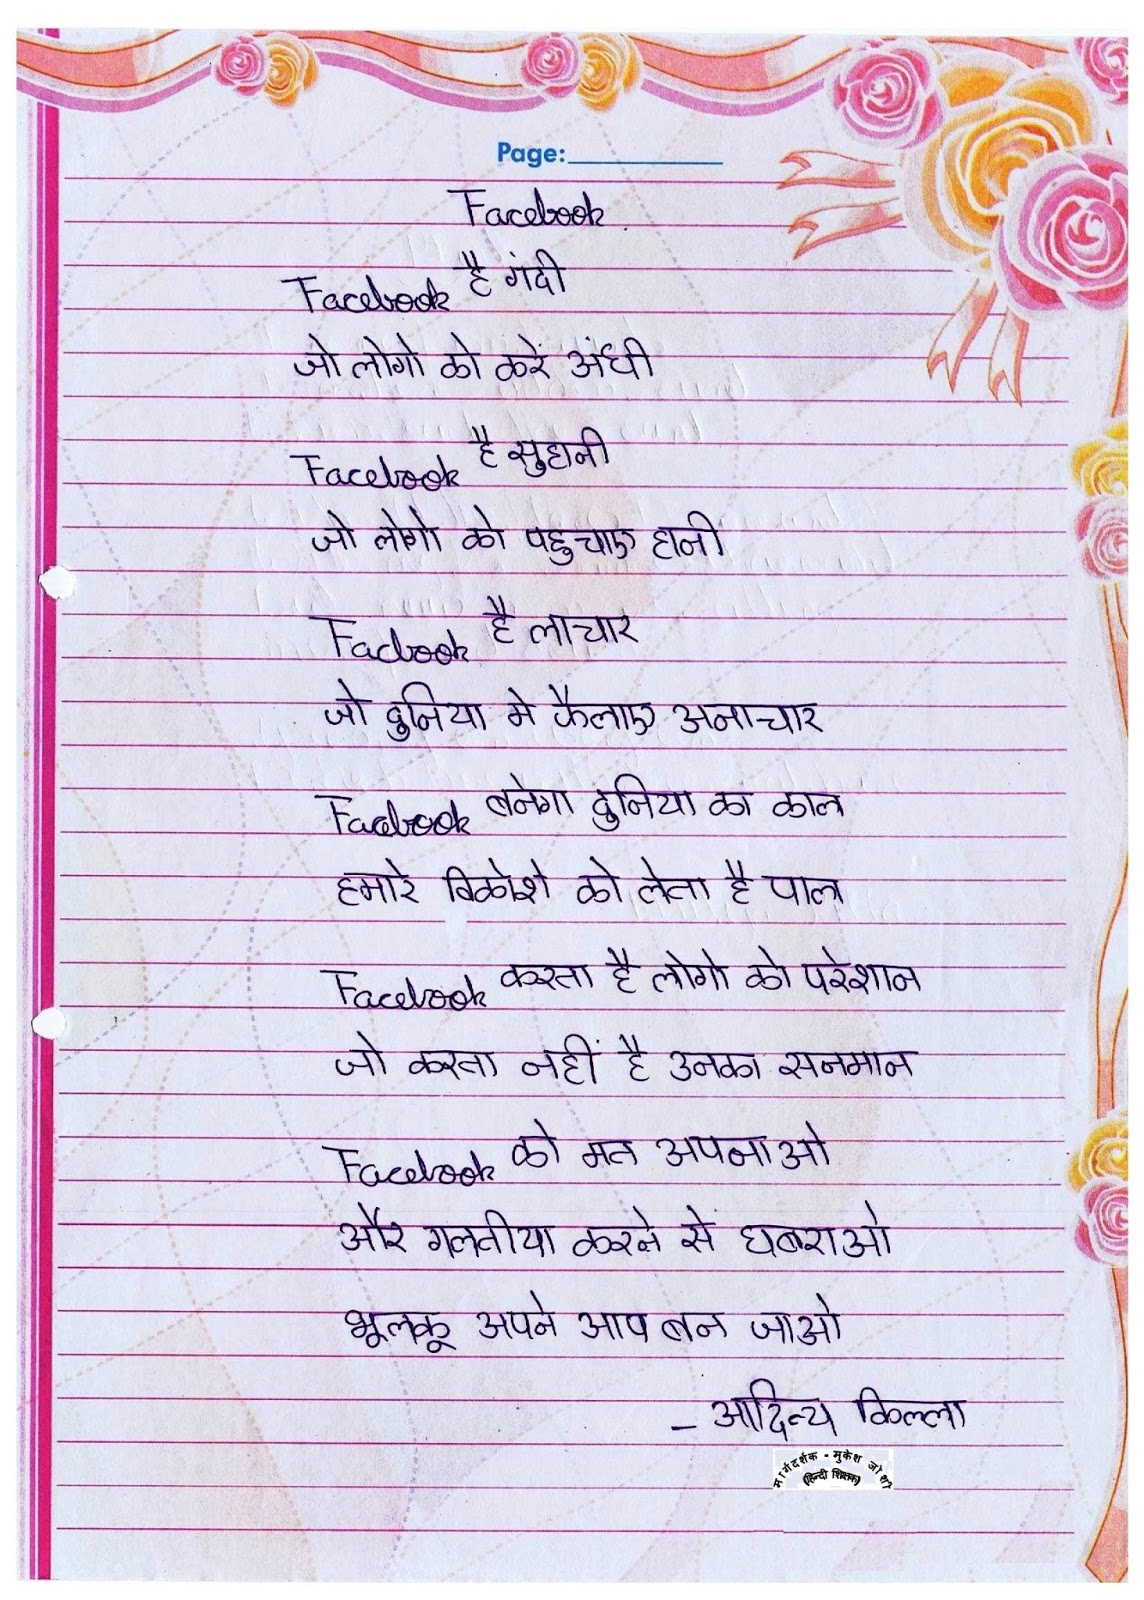 Page:
Facebook
Facebook है गंदी
जो लोगो को करें अंधी
Facebook है सुहानी
जो लोगो को पहुचाए हानी
Facbook है लाचार
जो दुनिया मे फैलाए अनाचार
Facebook बनेगा दुनिया का काल
हमारे को लेता है पाल
Facebook करता है लोगो को परेशान
जो करता नहीं है उनका सनमान
Facebook को मत अपनाओ
और गलतीया करने से घबराओ
अपने आप बन जाओ
– आदित्य किल्ला
मार्गदर्शक - मुकेश जोशी
(हिन्दी शिक्षक)